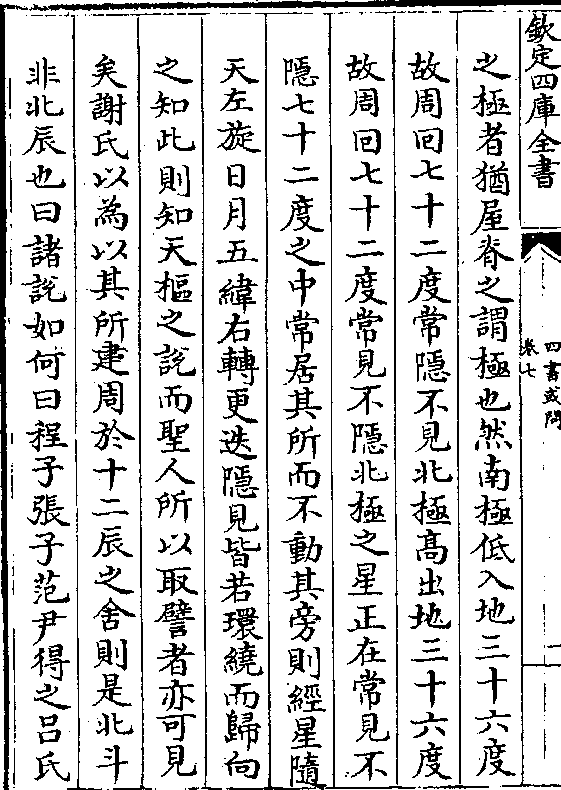 欽定四庫全書
四書或問
卷七
二
之極者猶屋脊之謂極也然南極低入地三十六度
故周回七十二度常隱不見北極高出地三十六度
故周回七十二度常見不隱北極之星正在常見不
隱七十二度之中常居其所而不動其旁則經星隨
天左旋日月五緯右轉更迭隱見皆若環繞而歸向
之知此則知天樞之說而聖人所以取譬者亦可見
矣謝氏以為以其所建周於十二辰之舍則是北斗
非北辰也曰諸說如何曰程子張子范尹得之吕氏